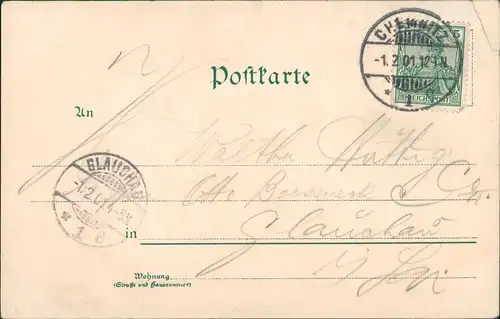 Postkarte
CHEMNITZ
-1.2.01.12-1N.
* 1
5
REICHSPOST
An
Walther Hüttig
Otto & Co.
GLAUCHAU
-1.2.01.4-5N.
* 1 e
in
Glauchau
i/ Sa.
Wohnung
(Straße und Hausnummer)